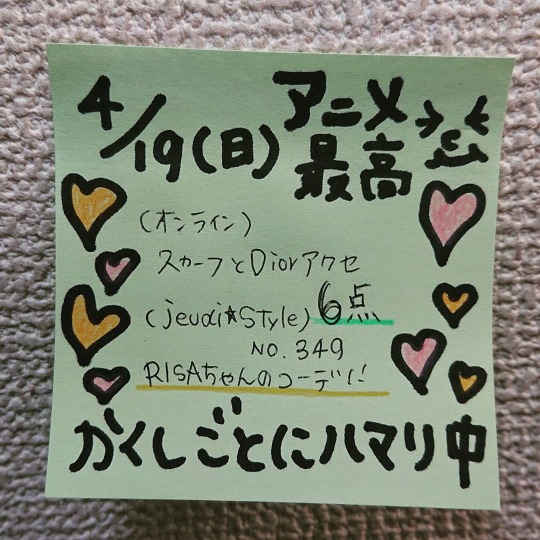 4/19(日)
アニメ
最高
(オンライン)
スカーフとDiorアクセ
(jevai★Style) 6点
NO. 349
RISAちゃんのコーデに!
かくしごとにハマり中